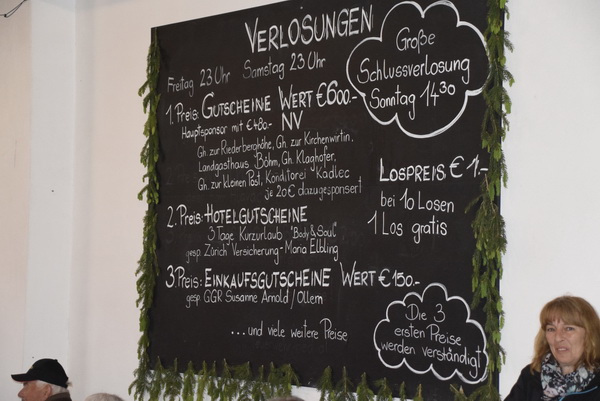 VERLOSUNGEN
Freitag 23 Uhr Samstag 23 Uhr
1. Preis: GUTSCHEINE WERT €600.-
Hauptsponsor mit €480.- NV
Gh. zur Riederberghöhe, Gh. zur Kirchenwirtin,
Landgasthaus Böhm, Gh. Klaghofer,
Gh. zur kleinen Post, Konditorei Kadlec
je 20€ dazugesponsert
2. Preis: HOTELGUTSCHEINE
3 Tage Kurzurlaub "Body & Soul"
gesp. Zürich Versicherung - Maria Elbling
3. Preis: EINKAUFSGUTSCHEINE WERT €150.-
gesp. GGR Susanne Arnold / Ollern
...und viele weitere Preise
Große
Schlussverlosung
Sonntag 14 30
LOSPREIS € 1.-
bei 10 Losen
1 Los gratis
Die 3
ersten Preise
werden verständigt